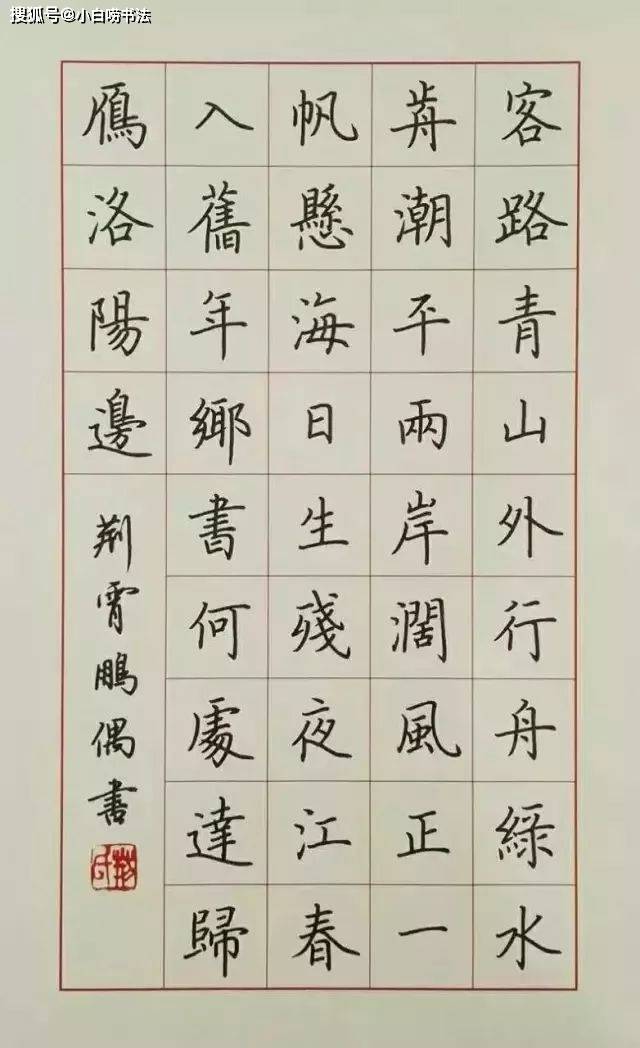 搜狐号@小白唠书法
客路青山外行舟綠水
前潮平兩岸濶風正一
帆懸海日生殘夜江春
入舊年鄉書何處達歸
鴈洛陽邊
荆霄鵬偶書